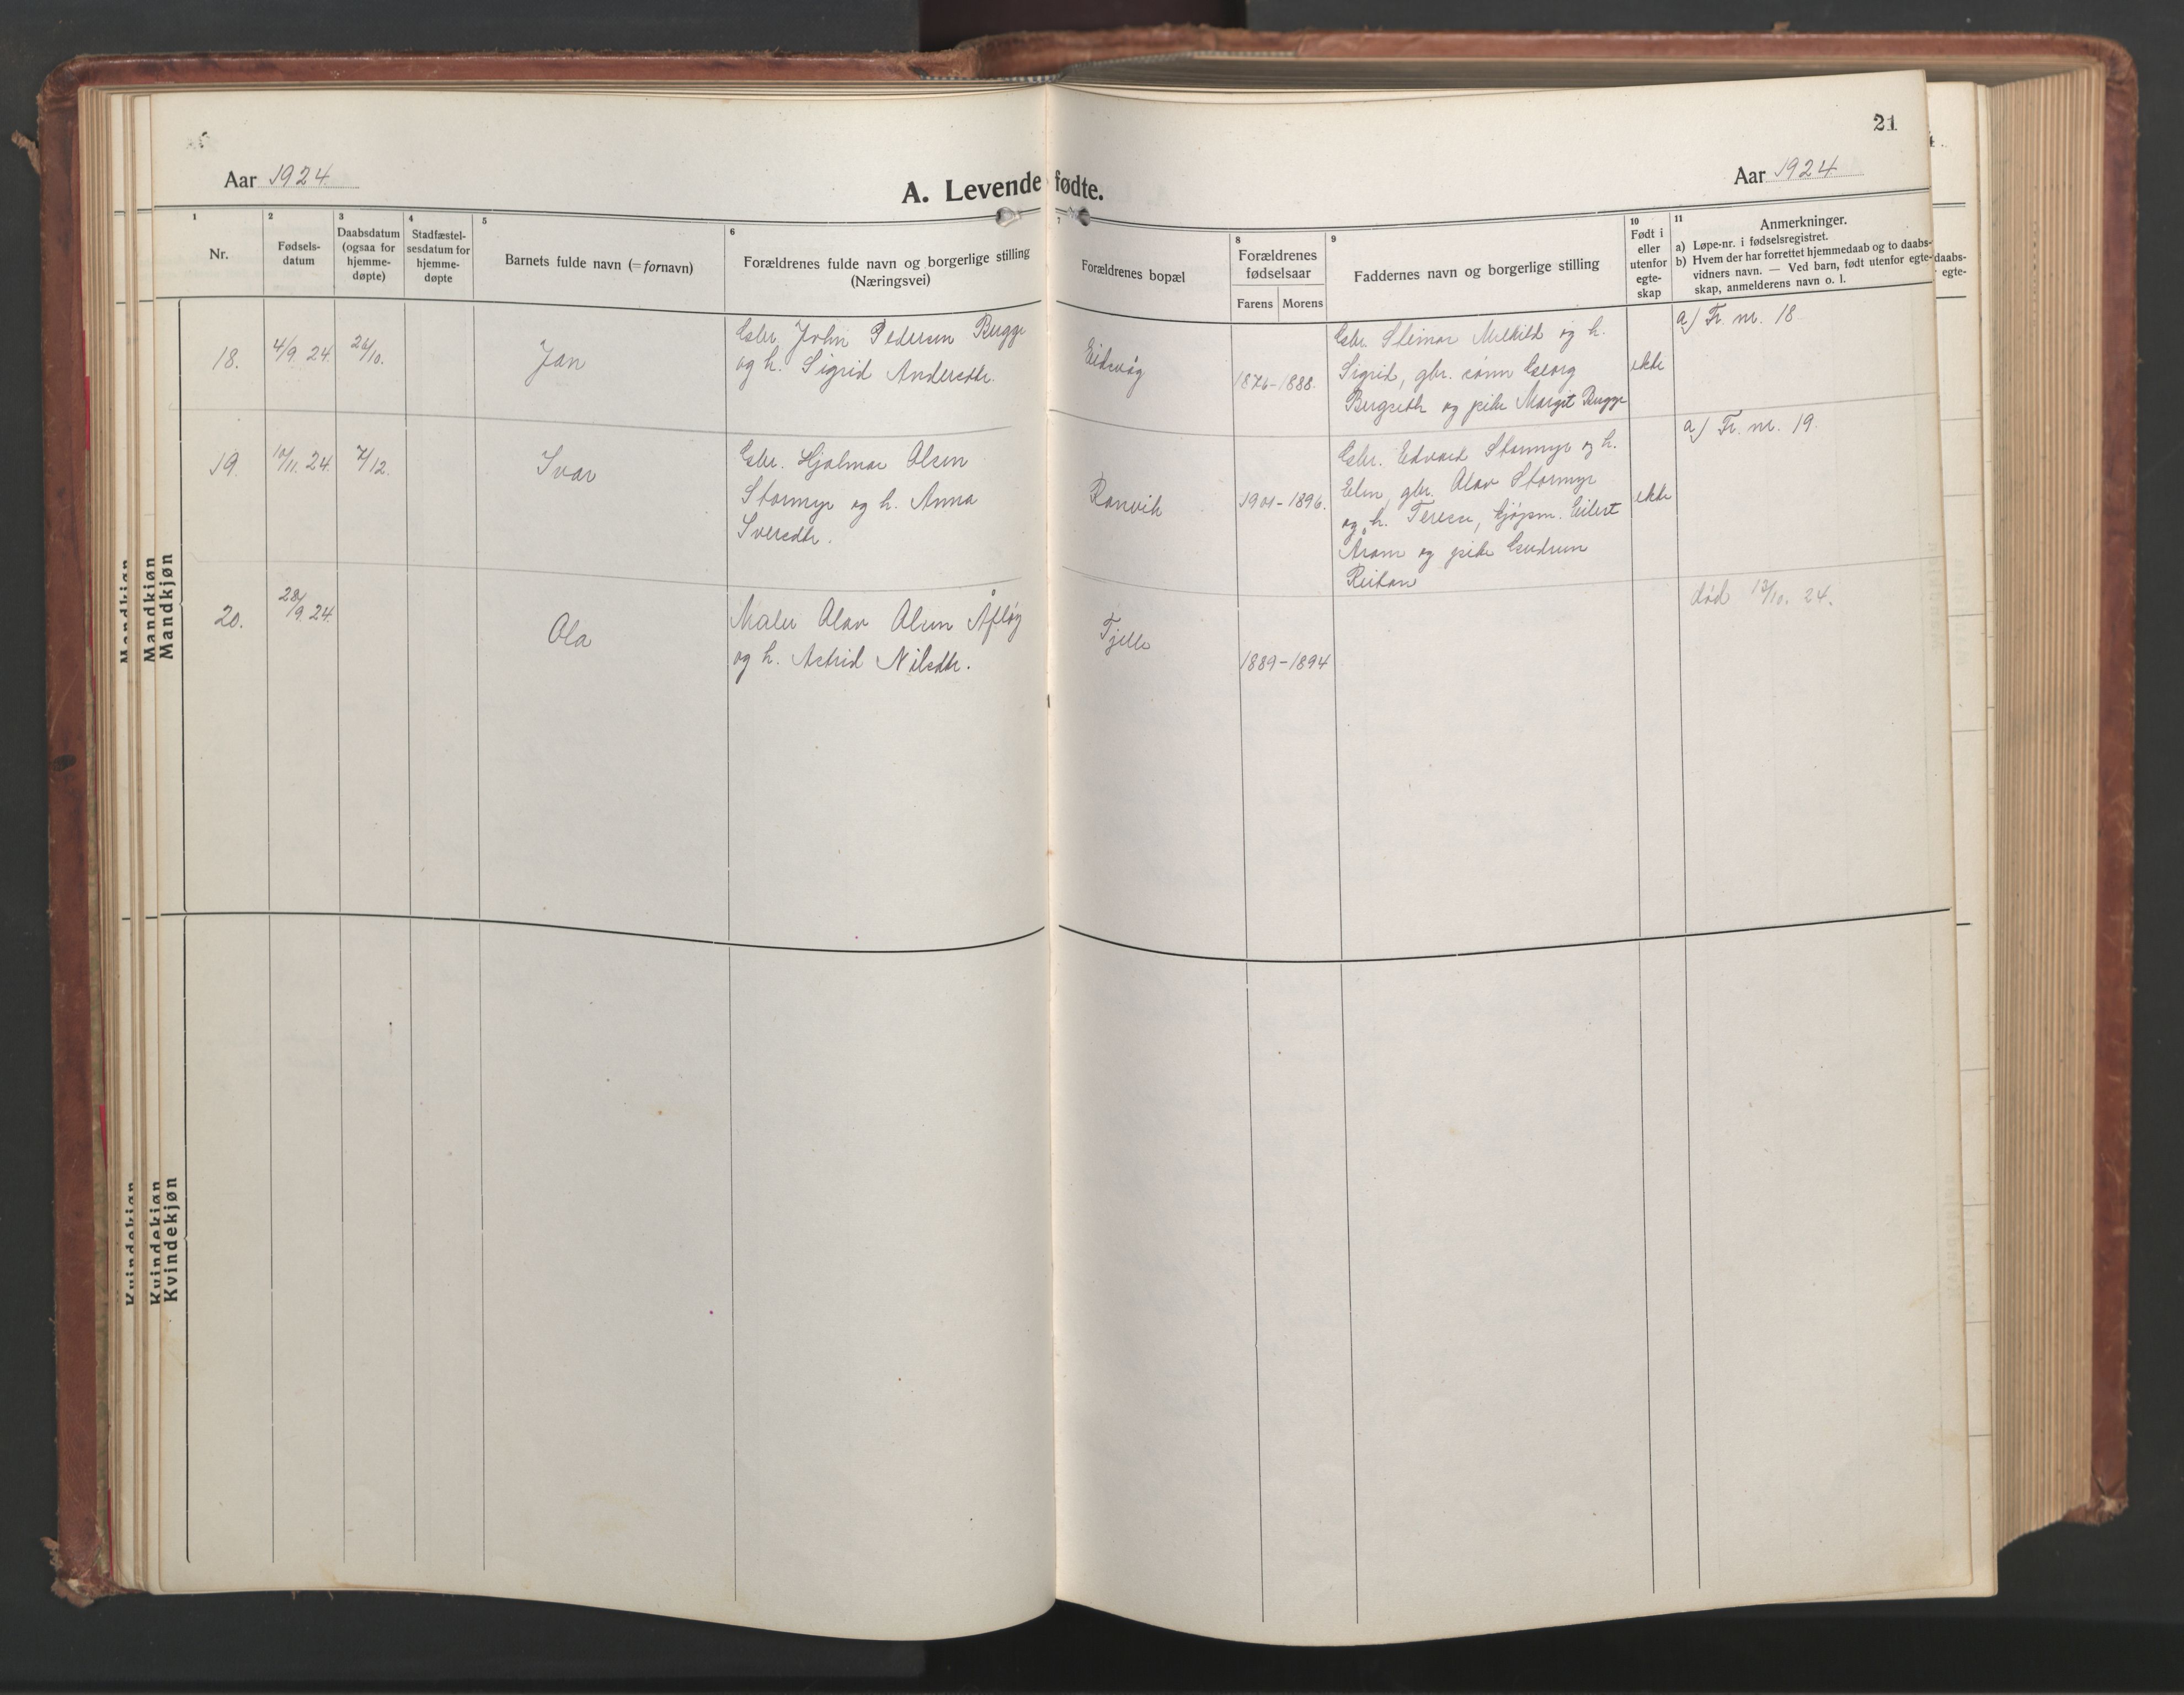 21
Aar 1924
A. Levende fødte.
Aar 1924
1
Nr.
2
Fødsels-
datum
3
Daabsdatum
(ogsaa for
hjemme-
døpte)
4
Stadfæstel-
sesdatum for
hjemme-
døpte
5
Barnets fulde navn (=fornavn)
6
Forældrenes fulde navn og borgerlige stilling
(Næringsvei)
7
Forældrenes bopæl
8
Forældrenes
fødselsaar
Farens Morens
9
Faddernes navn og borgerlige stilling
10
Født i
eller
utenfor
egte-
skap
11
Anmerkninger.
a) Løpe-nr. i fødselsregistret.
b) Hvem der har forrettet hjemmedaab og to daabs-
vidners navn. — Ved barn, født utenfor egte-
skap, anmelderens navn o. l.
daabs-
egte-
Mandkjøn
Mandkjøn
Mandkjøn
18.
4/9. 24.
26/10.
Jan
Gbr. John Pedersen Bugge
og h. Sigrid Andersdtr.
Eidsvåg
1876-1888.
Gbr. Steinar Melkild og h.
Sigrid, gbr. sønn Georg
Bergseth og pike Margit Bugge
ekte
a) Fr. nr. 18
19.
10/11. 24.
7/12.
Ivar
Gbr. Hjalmar Olsen
Stormyr og h. Anna
Iversdtr.
Ranvik
1901-1896.
Gbr. Edvard Stormyr og h.
Elen, gbr. Olav Stormyr
og h. Terese, kjøpm. Eilert
Åram og pike Gudrun
Reitan
ekte
a) Fr. nr. 19.
20.
28/9. 24.
Ola
Maler Olav Olsen Åfløy
og h. Astrid Nilsdtr.
Tjelle
1889-1894
død 13/10. 24.
Kvindekjøn
Kvindekjøn
Kvindekjøn